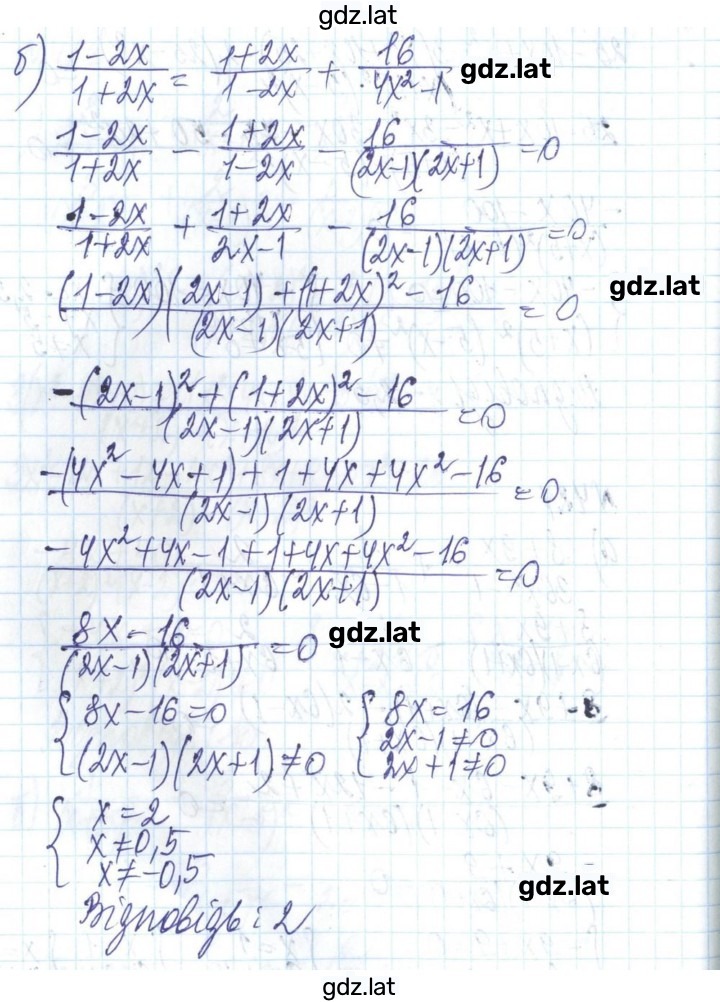 gdz.lat
б) (1-2x)/(1+2x) = (1+2x)/(1-2x) + 16/(4x²-1) gdz.lat
(1-2x)/(1+2x) - (1+2x)/(1-2x) - 16/((2x-1)(2x+1)) = 0
(1-2x)/(1+2x) + (1+2x)/(2x-1) - 16/((2x-1)(2x+1)) = 0
gdz.lat
((1-2x)(2x-1)+(1+2x)²-16)/((2x-1)(2x+1)) = 0
(-(2x-1)²+(1+2x)²-16)/((2x-1)(2x+1)) = 0
(-(4x²-4x+1)+1+4x+4x²-16)/((2x-1)(2x+1)) = 0
(-4x²+4x-1+1+4x+4x²-16)/((2x-1)(2x+1)) = 0
(8x-16)/((2x-1)(2x+1)) = 0 gdz.lat
{ 8x-16=0
(2x-1)(2x+1)≠0
{ 8x=16
2x-1≠0
2x+1≠0
{ x=2
x≠0,5
x≠-0,5
gdz.lat
Відповідь: 2
gdz.lat